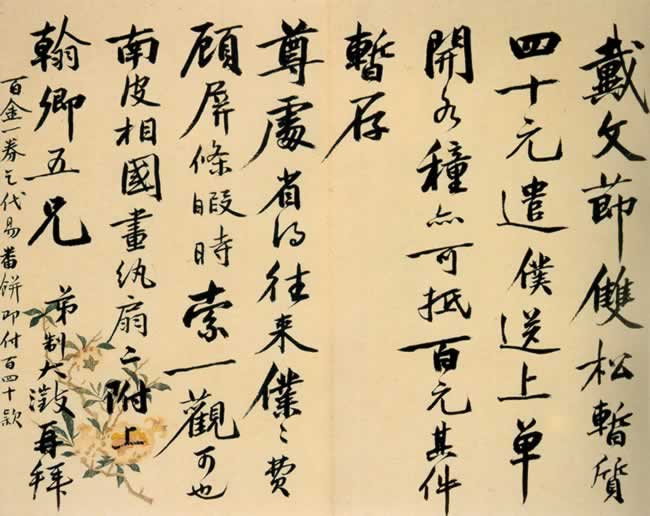 戴文節雙松暫質
四十元遣僕送上單
開各種亦可抵百元其件
暫存
尊處省得往來僕〻費
顧屏條暇時索一觀可也
南皮相國畫紈扇二附上
翰卿五兄 弟制大澂再拜
百金一券乞代易番餅即付百四十款